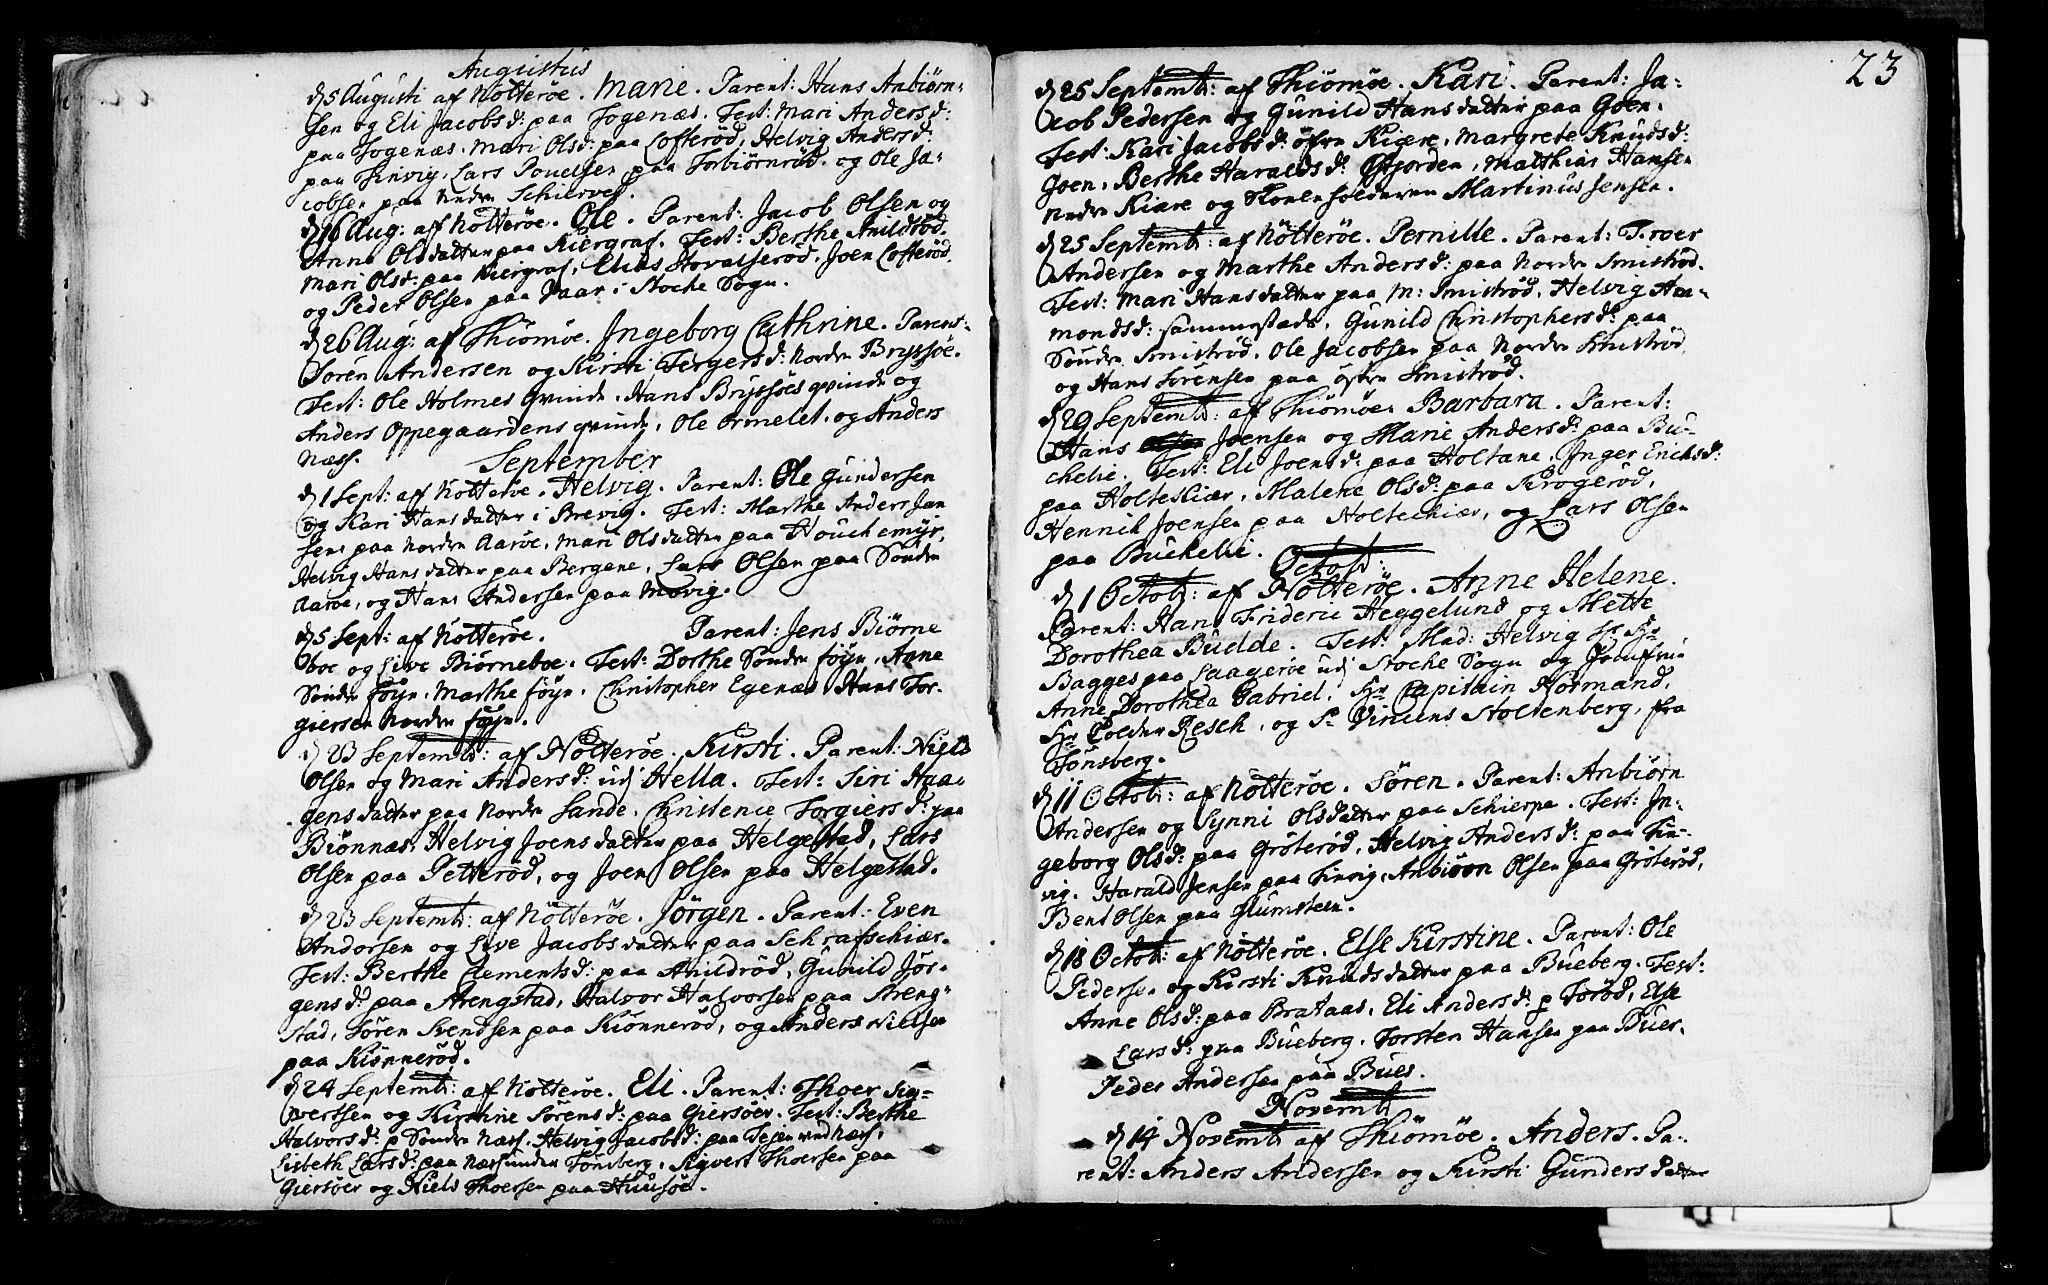 Augustus
d 5 Augusti af Nötteröe. Marie. Parent: Hans Anbiörn-
sen og Eli Jacobsd: paa Fogenæs. Test: Mari Andersd:
paa Fogenæs. Mari Olsd: paa Lofteröd, Helvig Andersd:
paa Finvig. Lars Pouelsen paa Torbiörnröd. og Ole Ja-
cobsen paa Nedre Schierve.
d 16 Aug: aff Nötteröe. Ole. Parent: Jacob Olsen og
Anne Olsdatter paa Kiergraf. Test: Berthe Anildröd.
Mari Olsd: paa Kiergraf, Elias Hovalseröd. Joen Lofteröd.
og Peder Olsen paa Vaar i Stoche Sogn.
d 26 Aug: af Thiömöe. Jngeborg Cathrine. Parent:
Sören Andersen og Kirsti Tergersd: Nordre Bryssöe.
Test: Ole Holmes qvinde. Hans Bryssöes qvinde og
Anders Oppegaardens qvinde. Ole Ormelet. og Anders
Næss.
September
d 1 Sept: aff Nötteröe. Helvig. Parent: Ole Gundersen
og Kari Hansdatter i Brevig. Test: Marthe Anders Jan
sens paa Nordre Aaröe, Mari Olsdatter paa Houchemyr,
Helvig Hansdatter paa Bergene, Lars Olsen paa Söndre
Aaröe, og Hans Andersen paa Møvig.
d 5 Sept: af Nötteröe. Parent: Jens Biörne
boe og Live Biörneboe. Test: Dorthe Söndre föyn. Anne
Söndre föyn. Marthe föyn. Christopher Egenæs. Hans Tor-
giersen Nordre föyn.
d 23 Septemb: af Nötteröe. Kirsti. Parent: Niels
Olsen og Mari Andersd: udj Hella. Test: Siri Haa-
gensdatter paa Nordre Sande. Christence Torgiersd: paa
Biönnæs, Helvig Joensdatter paa Helgestad, Lars
Olsen paa Petteröd, og Joen Olsen paa Helgestad.
d 23 Septemb: af Nötteröe. Jörgen. Parent: Even
Andersen og Live Jacobsdatter paa Schrafschiær.
Test: Berthe Clementsd: paa Anildröd, Gunild Jör-
gensd: paa Strengstad, Halvor Halvorsen paa Streng-
stad, Sören Svendsen paa Kiönneröd, og Anders Nielsen
paa Kiönneröd.
d 24 Septemb: af Nötteröe. Eli. Parent: Thoer Sig-
vertsen og Kirstine Sörensd: paa Giersöer. Test: Berthe
Halvorsd: p Söndre Næss. Helvig Jacobsd: paa Næss,
Lisbeth Larsd: paa Næss under Tönsberg, Sigvert Thoersen paa
Giersöer og Niels Thoersen paa Huusöe.
23
d 25 Septemb: af Thiömöe. Kari. Parent: Ja-
cob Pedersen og Gunild Hansdatter paa Goen.
Test: Kari Jacobsd: öfre Kiære, Margrete Knudsd:
Goen, Berthe Haraldsd: Gjorden, Matthias Hansen
Nedre Kiære og Skoeleholderen Martinus Jensen.
d 25 Septemb: af Nötteröe. Pernille. Parent: Troer
Andersen og Marthe Andersd: paa Nordre Smiströd.
Test: Mari Hansdatter paa N: Smiströd. Helvig Am-
mondsd: sammestads, Gunild Christophersd: paa
Söndre Smiströd. Ole Jacobsen paa Nordre Smiströd
og Hans Sörensen paa östre Smiströd.
d 29 Septemb: af Thiömöe. Barbara. Parent:
Hans Joensen og Marie Andersd: paa Bu-
chelie. Test: Eli Joensd: paa Holtane. Jnger Erichsd:
paa Holtekiær, Malene Olsd: paa Krogeröd,
Henrich Joensen paa Holtechiær, og Lars Olsen
paa Buckelie.
Octob:
d 1 Octob: af Nötteröe. Anne Helene.
Parent: Hans Frideric Heggelund og Mette
Dorothea Budde. Test: Mad: Helvig Sr. Hr
Bagges paa Laageröe udj Stoche Sogn og Jomfrue
Anne Dorothea Gabriel. Hr Capitain Normand,
Hr Colder Resch, og Sr Vincens Stoltenberg, fra
Tönsberg.
d 11 Octob: af Nötteröe. Sören. Parent: Anbiörn
Andersen og Synni Olsdatter paa Schierpe. Test: Jn-
geborg Olsd: paa Gröteröd, Helvig Andersd: paa Fin-
vig. Harald Jensen paa Finvig. Anbiörn Olsen paa Gröteröd,
Bent Olsen paa Glumsteen.
d 18 Octob: af Nötteröe. Else Kirstine. Parent: Ole
Pedersen og Kirsti Knudsdatter paa Bueberg. Test:
Anne Olsd: paa Brataas, Eli Andersd: p Toröd, Else
Larsd: paa Bueberg. Torsten Hansen paa Buer.
Peder Andersen paa Bues.
Novemb:
d 14 Novemb: af Thiömöe. Anders. Pa-
rent: Anders Andersen og Kirsti Gundersdatter